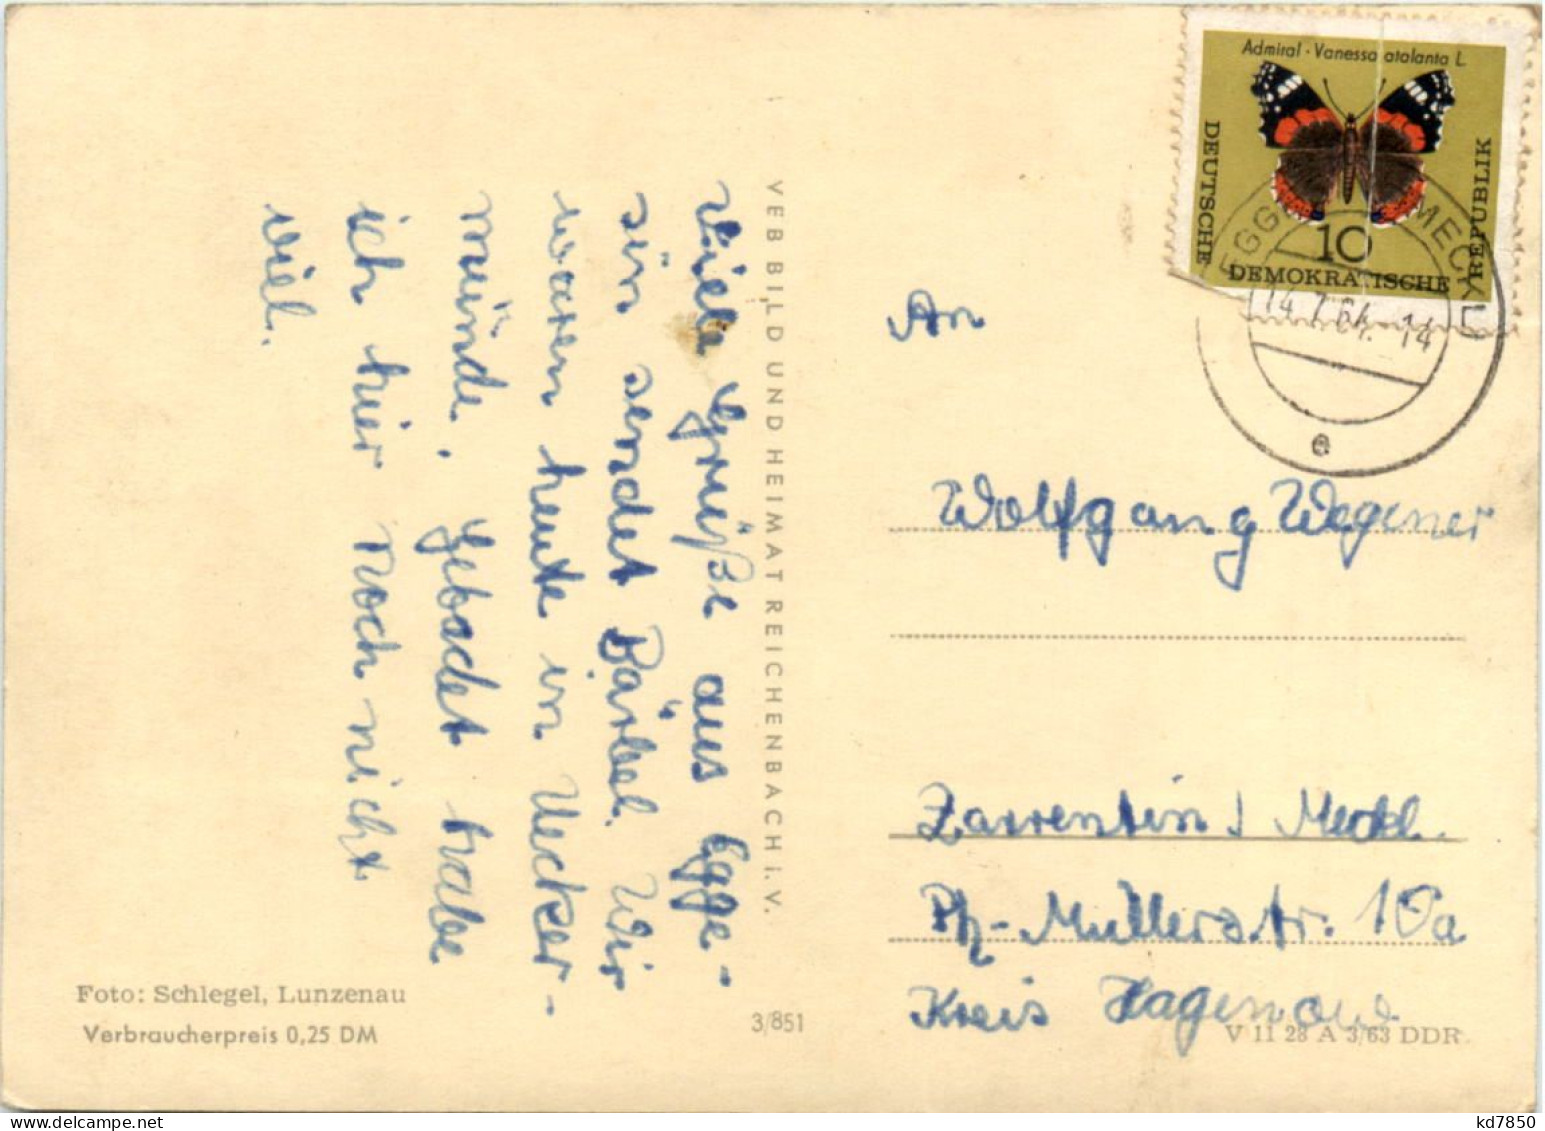 Viele Grüße aus Egge-
sin sendet Bärbel. Wir
waren heute in Uecker-
münde. Gebadet habe
ich hier noch nicht
viel.
Foto: Schlegel, Lunzenau
Verbraucherpreis 0,25 DM
VEB BILD UND HEIMAT REICHENBACH i. V.
3/851
Admiral · Vanessa atalanta L.
DEUTSCHE
10
DEMOKRATISCHE
REPUBLIK
14.7.64.-14
e
An
Wolfgang Wegener
Zarrentin / Meckl.
Ph-Müllerstr. 10a
Kreis Hagenow
V 11 28 A 3/63 DDR
kd7850